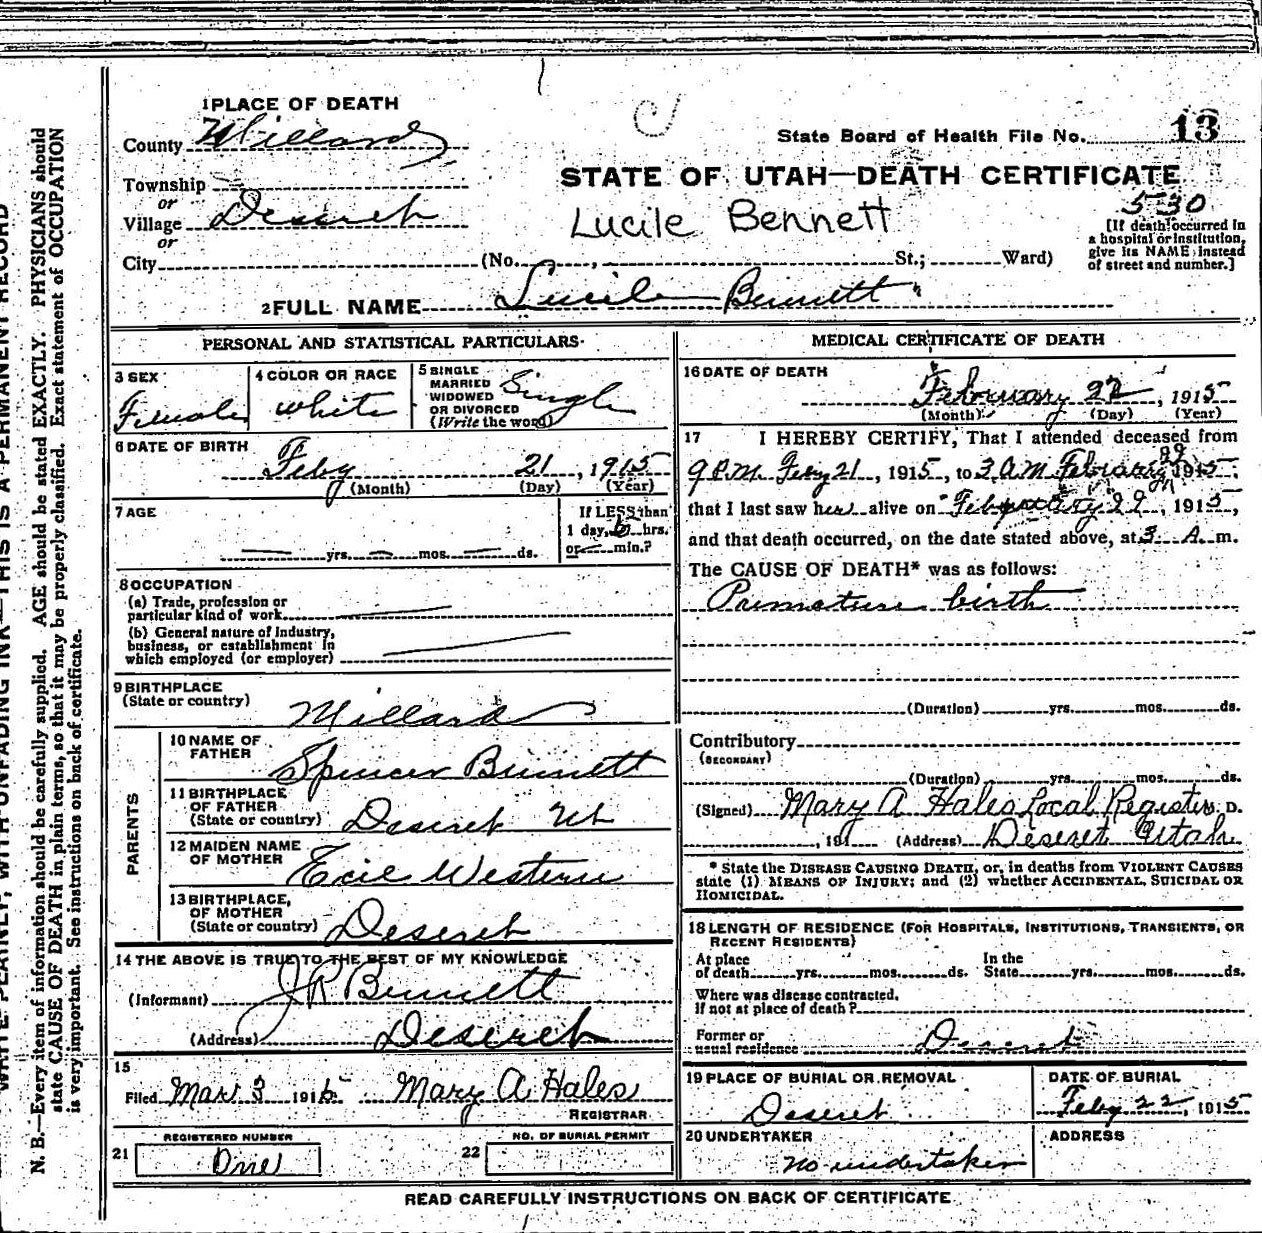 1 PLACE OF DEATH
County Millard
Township
or
Village Deseret
or
City (No. , St.; Ward)
State Board of Health File No. 13
STATE OF UTAH—DEATH CERTIFICATE
530
Lucile Bennett
[If death occurred in
a hospital or institution,
give its NAME instead
of street and number.]
2 FULL NAME Lucile Bennett
PERSONAL AND STATISTICAL PARTICULARS
3 SEX
Female
4 COLOR OR RACE
white
5 SINGLE
MARRIED
WIDOWED
OR DIVORCED
(Write the word)
Single
6 DATE OF BIRTH
Feby 21, 1915
(Month) (Day) (Year)
7 AGE
yrs. mos. ds.
If LESS than
1 day, 6 hrs.
or min.?
8 OCCUPATION
(a) Trade, profession or
particular kind of work
(b) General nature of industry,
business, or establishment in
which employed (or employer)
9 BIRTHPLACE
(State or country)
Millard
PARENTS
10 NAME OF
FATHER
Spencer Bennett
11 BIRTHPLACE
OF FATHER
(State or country)
Deseret Ut
12 MAIDEN NAME
OF MOTHER
Western
13 BIRTHPLACE,
OF MOTHER
(State or country)
Deseret
14 THE ABOVE IS TRUE TO THE BEST OF MY KNOWLEDGE
(Informant) J R Bennett
(Address) Deseret
15
Filed Mar 3 1915 Mary A Hales
REGISTRAR
REGISTERED NUMBER
21 One
NO. OF BURIAL PERMIT
22
MEDICAL CERTIFICATE OF DEATH
16 DATE OF DEATH
February 22, 1915
(Month) (Day) (Year)
17 I HEREBY CERTIFY, That I attended deceased from
9 P.M. Feby 21, 1915, to 3 A M February 22 1915,
that I last saw her alive on February 22, 1915,
and that death occurred, on the date stated above, at 3 A. m.
The CAUSE OF DEATH* was as follows:
Premature birth
(Duration) yrs. mos. ds.
Contributory
(SECONDARY)
(Duration) yrs. mos. ds.
(Signed) Mary A Hales Local Register D.
, 191 (Address) Deseret Utah
* State the DISEASE CAUSING DEATH, or, in deaths from VIOLENT CAUSES
state (1) MEANS OF INJURY; and (2) whether ACCIDENTAL, SUICIDAL OR
HOMICIDAL.
18 LENGTH OF RESIDENCE (FOR HOSPITALS, INSTITUTIONS, TRANSIENTS, OR
RECENT RESIDENTS)
At place
of death yrs. mos. ds.
In the
State yrs. mos. ds.
Where was disease contracted,
if not at place of death?
Former or
usual residence Deseret
19 PLACE OF BURIAL OR REMOVAL
Deseret
DATE OF BURIAL
Feby 22, 1915
20 UNDERTAKER
no undertaker
ADDRESS
READ CAREFULLY INSTRUCTIONS ON BACK OF CERTIFICATE
WRITE PLAINLY, WITH UNFADING INK—THIS IS A PERMANENT RECORD
N. B.—Every item of information should be carefully supplied. AGE should be stated EXACTLY. PHYSICIANS should
state CAUSE OF DEATH in plain terms, so that it may be properly classified. Exact statement of OCCUPATION
is very important. See instructions on back of certificate.